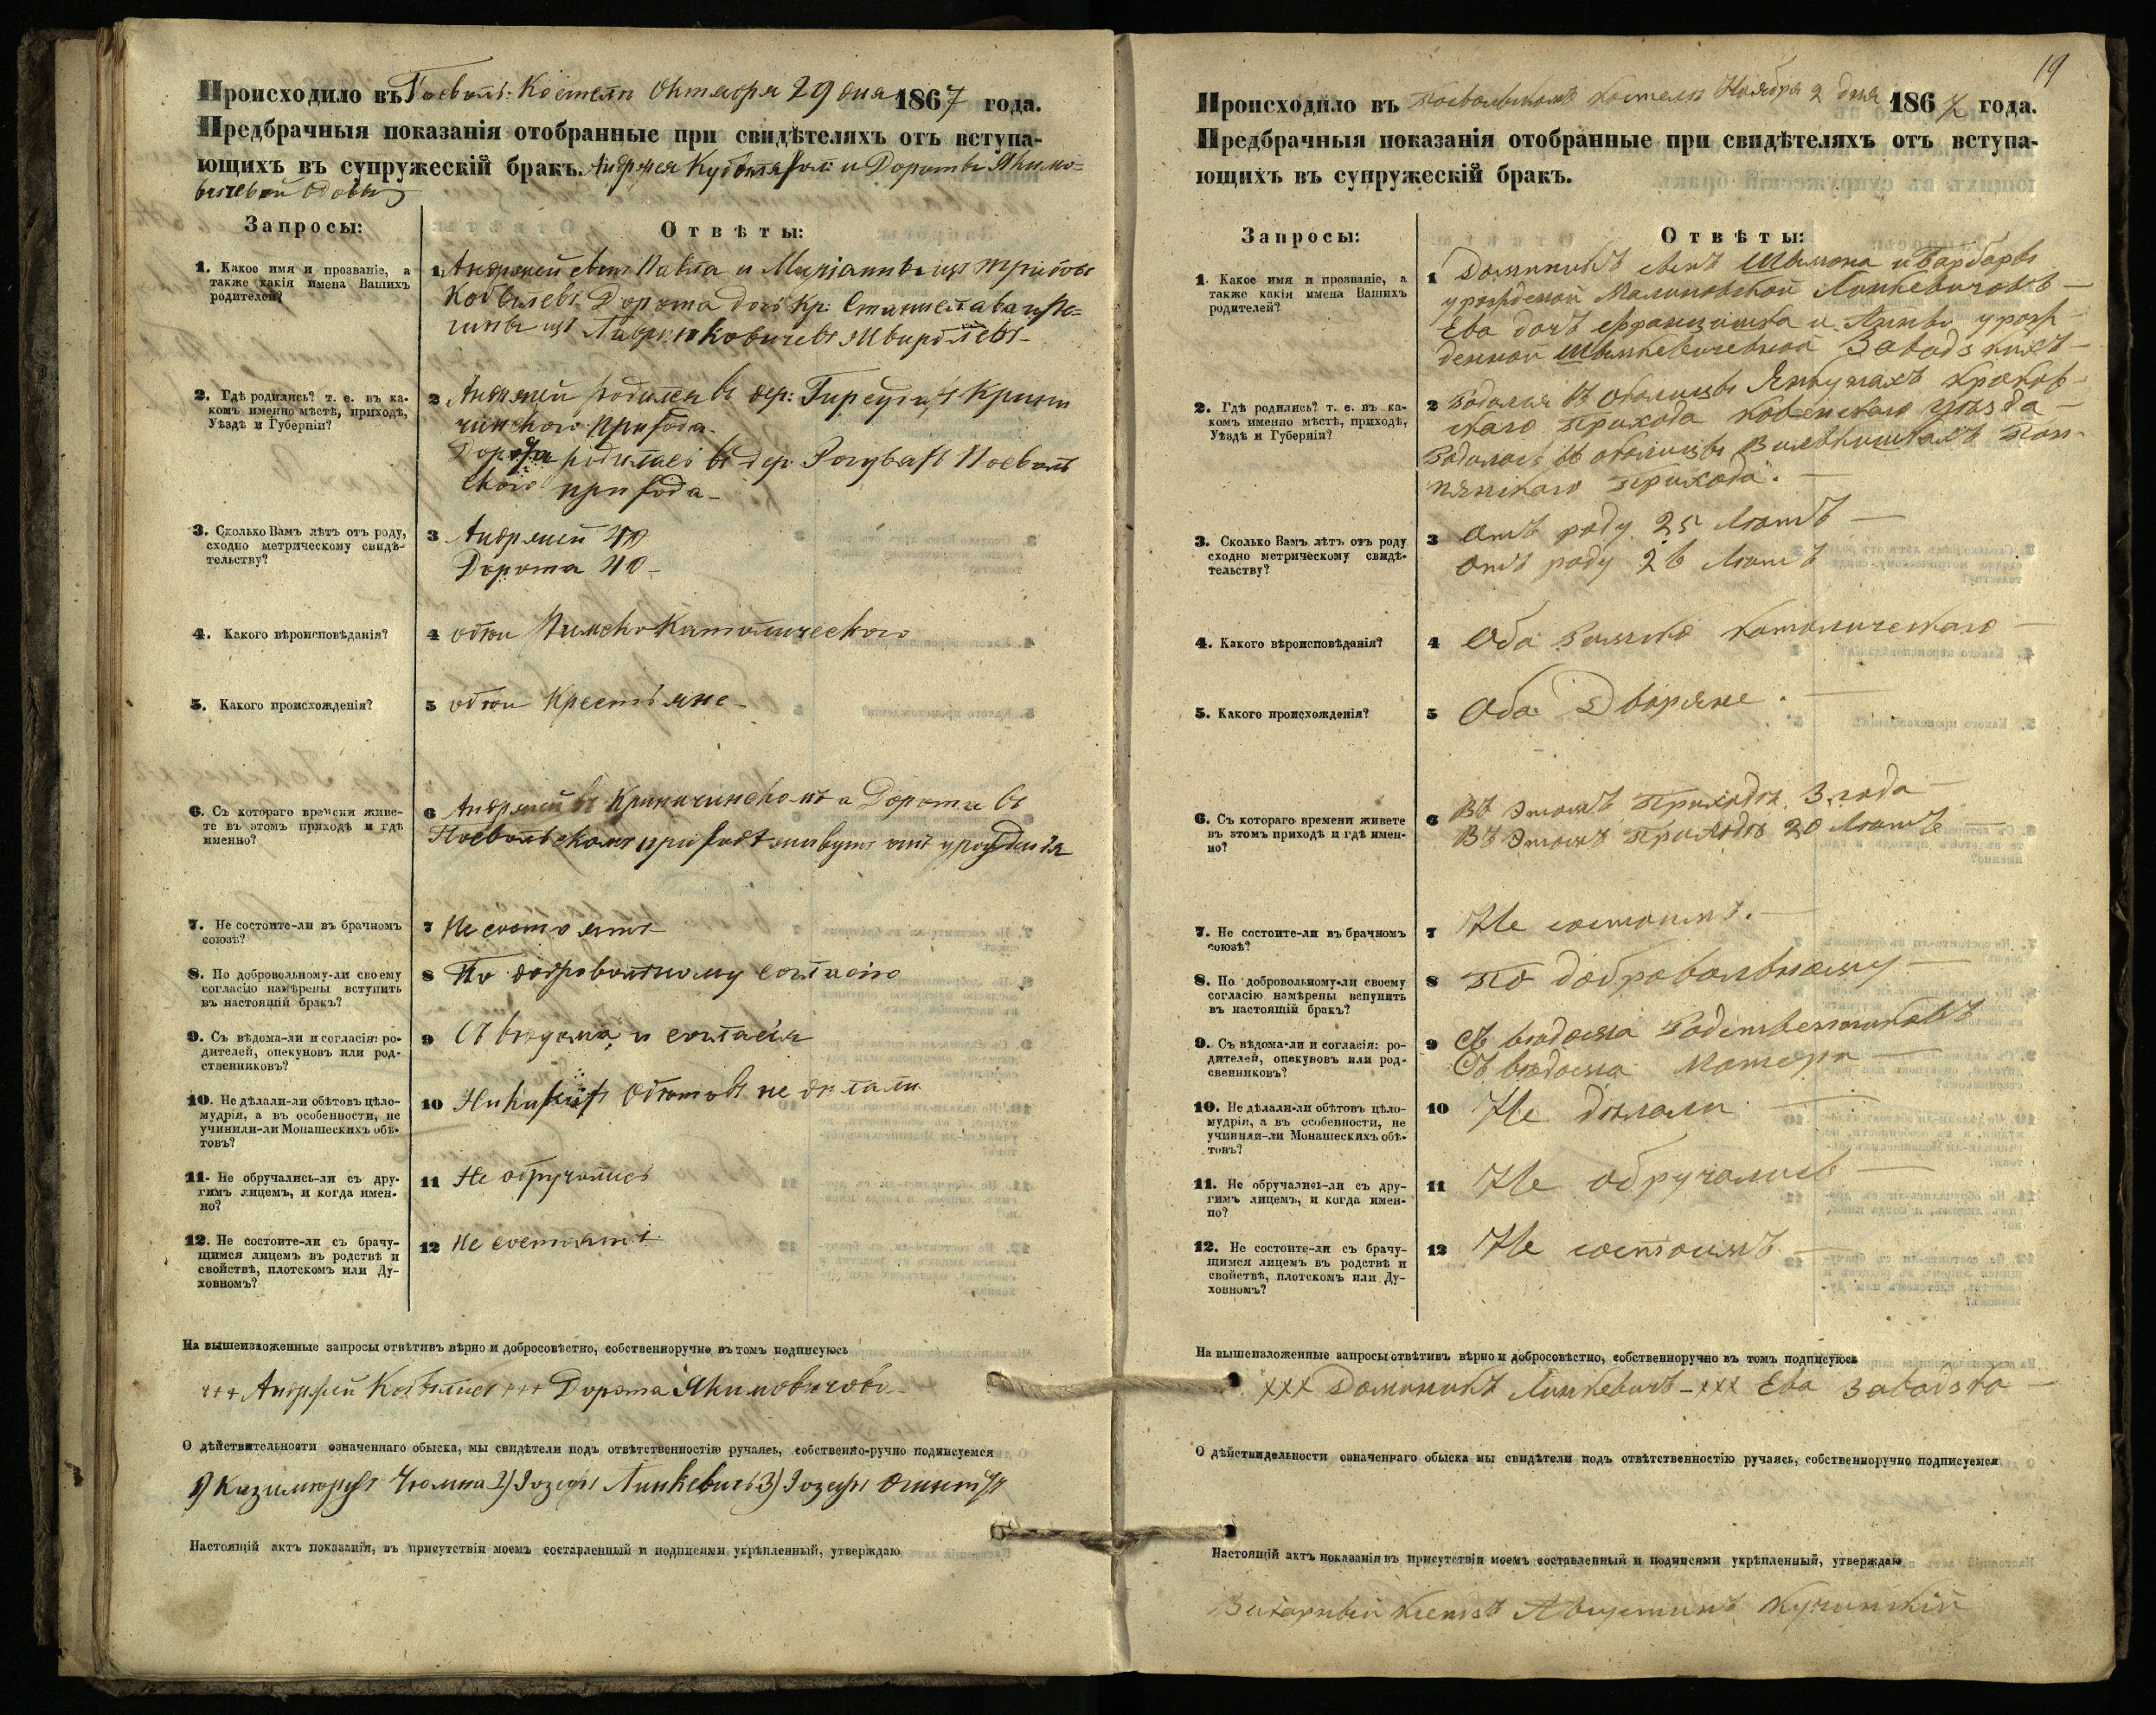 Происходило въ Поевол: Костелѣ Октября 29 дня 1867 года.
Предбрачныя показанія отобранные при свидѣтеляхъ отъ вступа-
ющихъ въ супружескій бракъ. Андржея и Дороты Якимо-
вичевой вдовы
Запросы:
Отвѣты:
1. Какое имя и прозваніе, а
также какія имена Вашихъ
родителей?
1 Андржей сынъ Павла и Маріанны изъ
Дорота дочь Кр: Станислава и Ре-
гины изъ
2. Гдѣ родились? т. е. въ ка-
комъ именно мѣстѣ, приходѣ,
Уѣздѣ и Губерніи?
2 Андржей родился въ дер:
прихода.
Дорота родилась въ дер. Поеволь
скаго прихода
3. Сколько Вамъ лѣтъ отъ роду,
сходно метрическому свидѣ-
тельству?
3 Андржей 40
Дорота 40
4. Какого вѣроисповѣданія?
4 обои Римско Католическаго
5. Какого происхожденія?
5 обои Крестьяне
6. Съ котораго времени живе-
те въ этомъ приходѣ и гдѣ
именно?
6 Андржей въ а Дорота въ
Поевольскомъ приходѣ живутъ отъ урожденія
7. Не состоите-ли въ брачномъ
союзѣ?
7 Не состоятъ
8. По добровольному-ли своему
согласію намѣрены вступить
въ настоящій бракъ?
8 По добровольному согласію
9. Съ вѣдома-ли и согласія: ро-
дителей, опекуновъ или род-
ственниковъ?
9 Съ вѣдома и согласія
10. Не дѣлали-ли обѣтовъ цѣло-
мудрія, а въ особенности, не
учинили-ли Монашескихъ обѣ-
товъ?
10 Никакихъ обѣтовъ не дѣлали
11. Не обручались-ли съ дру-
гимъ лицемъ, и когда имен-
но?
11 Не обручались
12. Не состоите-ли съ брачу-
щимся лицемъ въ родствѣ и
свойствѣ, плотскомъ или Ду-
ховномъ?
12 Не состоятъ
На вышеизложенные запросы отвѣтивъ вѣрно и добросовѣстно, собственноручно въ томъ подписуюсь
+++ Андржей +++ Дорота Якимовичова
О дѣйствительности означеннаго обыска, мы свидѣтели подъ отвѣтственностію ручаясь, собственно-ручно подписуемся
1) Казимержъ 2) Іозефъ Линкевичъ 3) Іозефъ
Настоящій актъ показанія, въ присутствіи моемъ составленный и подписями укрѣпленный, утверждаю
19
Происходило въ Поевольскомъ костелѣ Ноября 2 дня 1867 года.
Предбрачныя показанія отобранные при свидѣтеляхъ отъ вступа-
ющихъ въ супружескій бракъ.
Запросы:
Отвѣты:
1. Какое имя и прозваніе, а
также какія имена Вашихъ
родителей?
1 Доминикъ сынъ Шимона и Барбары
урожденой Малиновской Линкевичовъ
Ева дочь Францишка и Анны урож-
денной Шимкевичевной Завадзкихъ
2. Гдѣ родились? т. е. въ ка-
комъ именно мѣстѣ, приходѣ,
Уѣздѣ и Губерніи?
2 Родился въ околицы
скаго прихода Ковенскаго уѣзда
Родилась въ околицы
прихода.
3. Сколько Вамъ лѣтъ отъ роду
сходно метрическому свидѣ-
тельству?
3 Отъ роду 25 лѣтъ
Отъ роду 26 лѣтъ
4. Какого вѣроисповѣданія?
4 Оба Римско католическаго
5. Какого происхожденія?
5 Оба Дворяне.
6. Съ котораго времени живете
въ этомъ приходѣ и гдѣ имен-
но?
6 Въ этомъ приходѣ 3 года
Въ этомъ приходѣ 20 лѣтъ
7. Не состоите-ли въ брачномъ
союзѣ?
7 Не состоимъ.
8. По добровольному-ли своему
согласію намѣрены вспупить
въ настоящій бракъ?
8 По добровольному
9. Съ вѣдома-ли и согласія: ро-
дителей, опекуновъ или род-
свенниковъ?
9 Съ вѣдома Родственниковъ
Съ вѣдома Матери
10. Не дѣлали-ли обѣтовъ цѣло-
мудрія, а въ особенности, не
учинили-ли Монашескихъ обѣ-
товъ?
10 Не дѣлали
11. Не обручались-ли съ дру-
гимъ лицемъ, и когда имен-
но?
11 Не обручались
12. Не состоите-ли съ брачу-
щимся лицемъ въ родствѣ и
свойствѣ, плотскомъ или Ду-
ховномъ?
12 Не состоимъ
На вышеизложенные запросы отвѣтивъ вѣрно и добросовѣстно, собственноручно въ томъ подписуюсь
xxx Доминикъ Линкевичъ - xxx Ева Завадзка
О дѣйствидельности означеннаго обыска мы свидѣтели подъ отвѣтственностію ручаясь, собственноручно подписуемся
Настоящій актъ показанія въ присутствія моемъ составленный и подписями укрѣпленный, утверждаю
Викарный Ксендзъ Августинъ Кучинскій